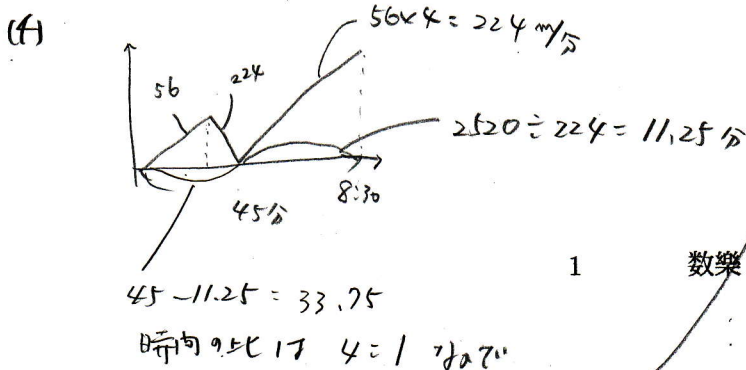 (4)
56×4=224 m/分
56
224
2520÷224=11.25分
45分
8:30
1
数樂
45-11.25=33.75
時間の比は 4:1 なので